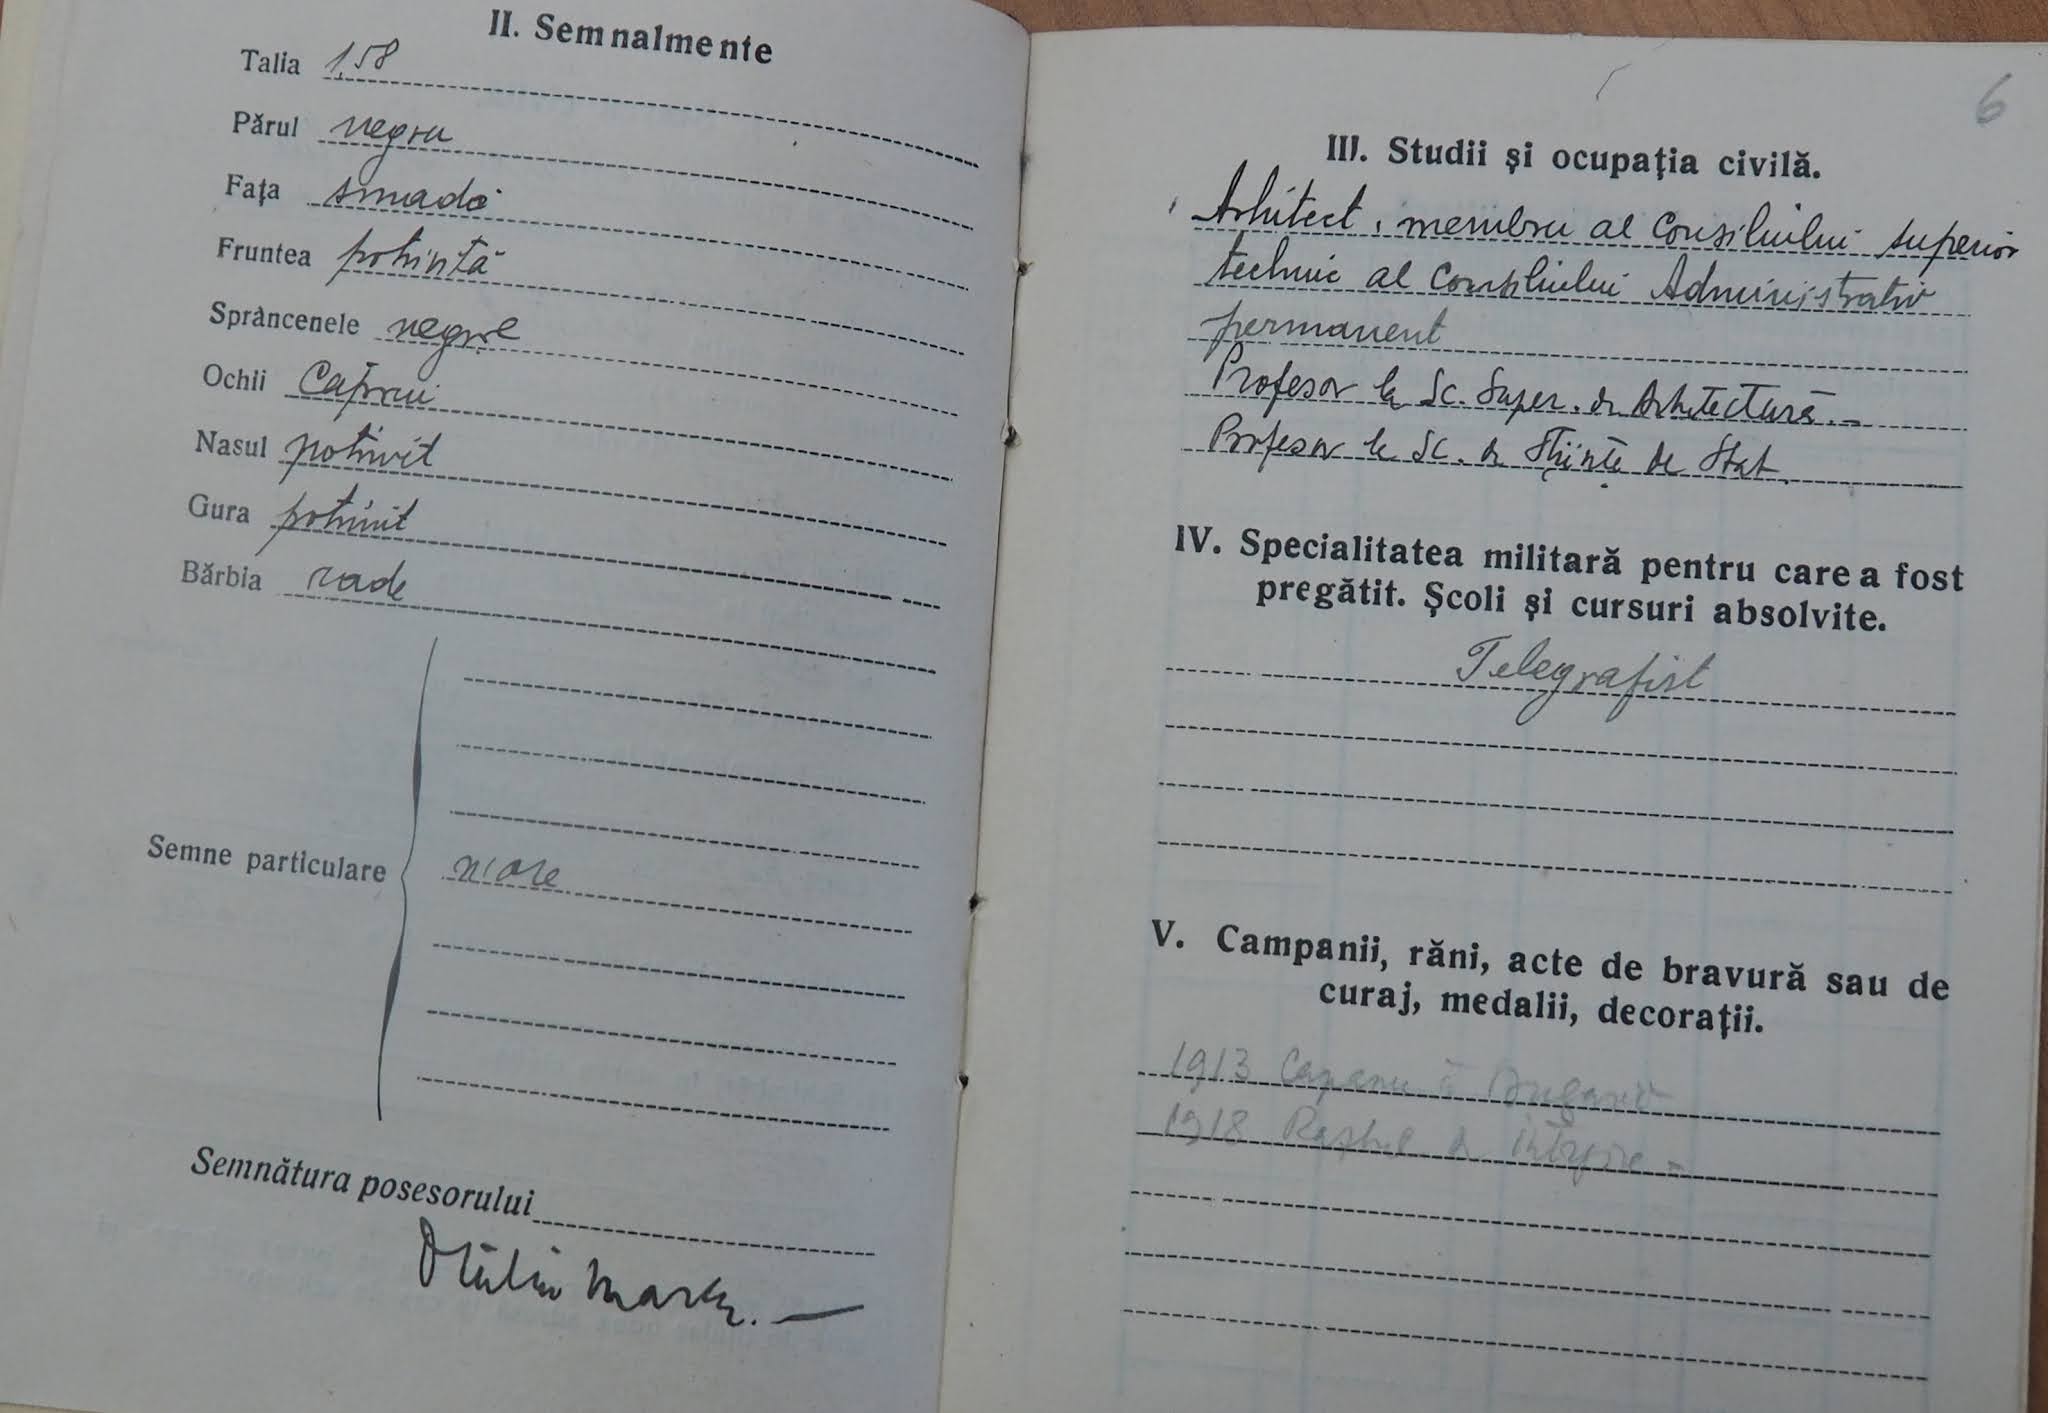 II. Semnalmente
Talia 1,58
Părul negru
Fața smadă
Fruntea potrivită
Sprâncenele negre
Ochii Căprui
Nasul potrivit
Gura potrivit
Bărbia rade
Semne particulare
n'are
Semnătura posesorului
6
III. Studii și ocupația civilă.
Arhitect, membru al Consiliului superior
technic al Consiliului Administrativ
permanent
Profesor la Sc. Super. de Arhitectură.-
Profesor la Sc. de Științe de Stat
IV. Specialitatea militară pentru care a fost
pregătit. Școli și cursuri absolvite.
Telegrafist
V. Campanii, răni, acte de bravură sau de
curaj, medalii, decorații.
1913
1918